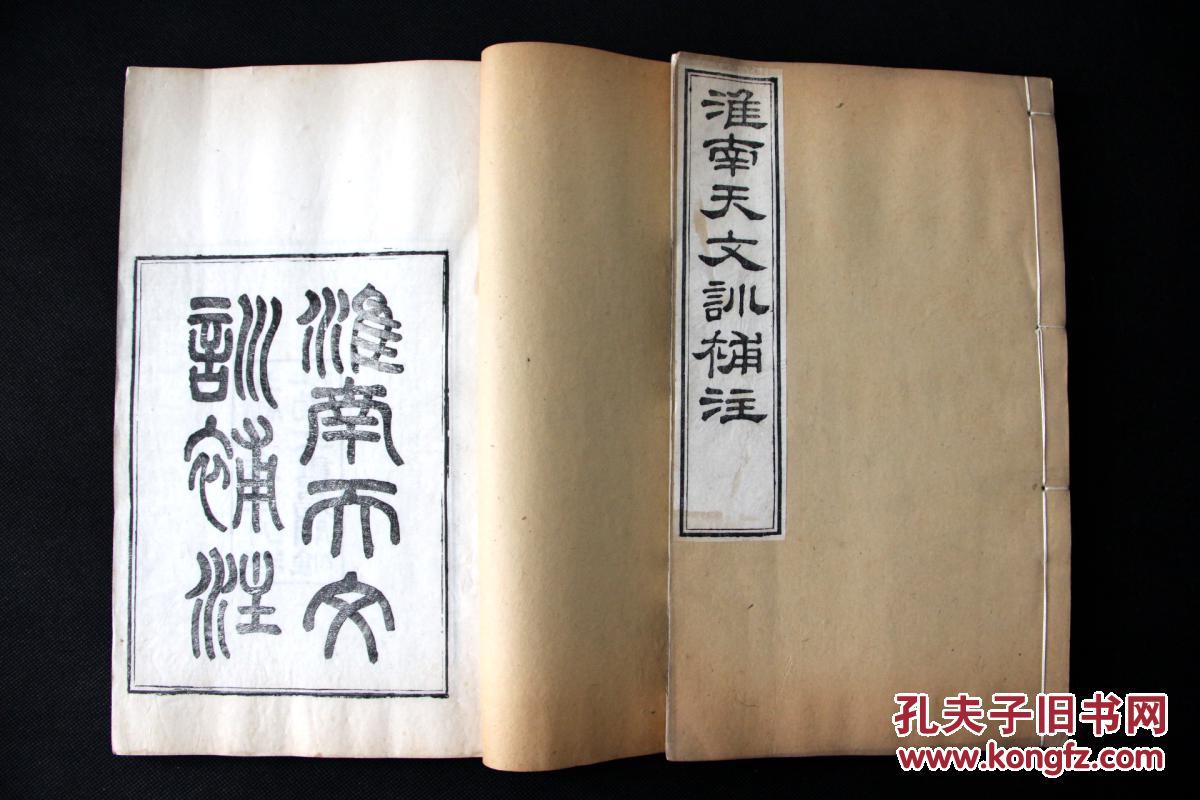 淮南天文訓補注
淮南天文
訓補注
孔夫子旧书网
www.kongfz.com